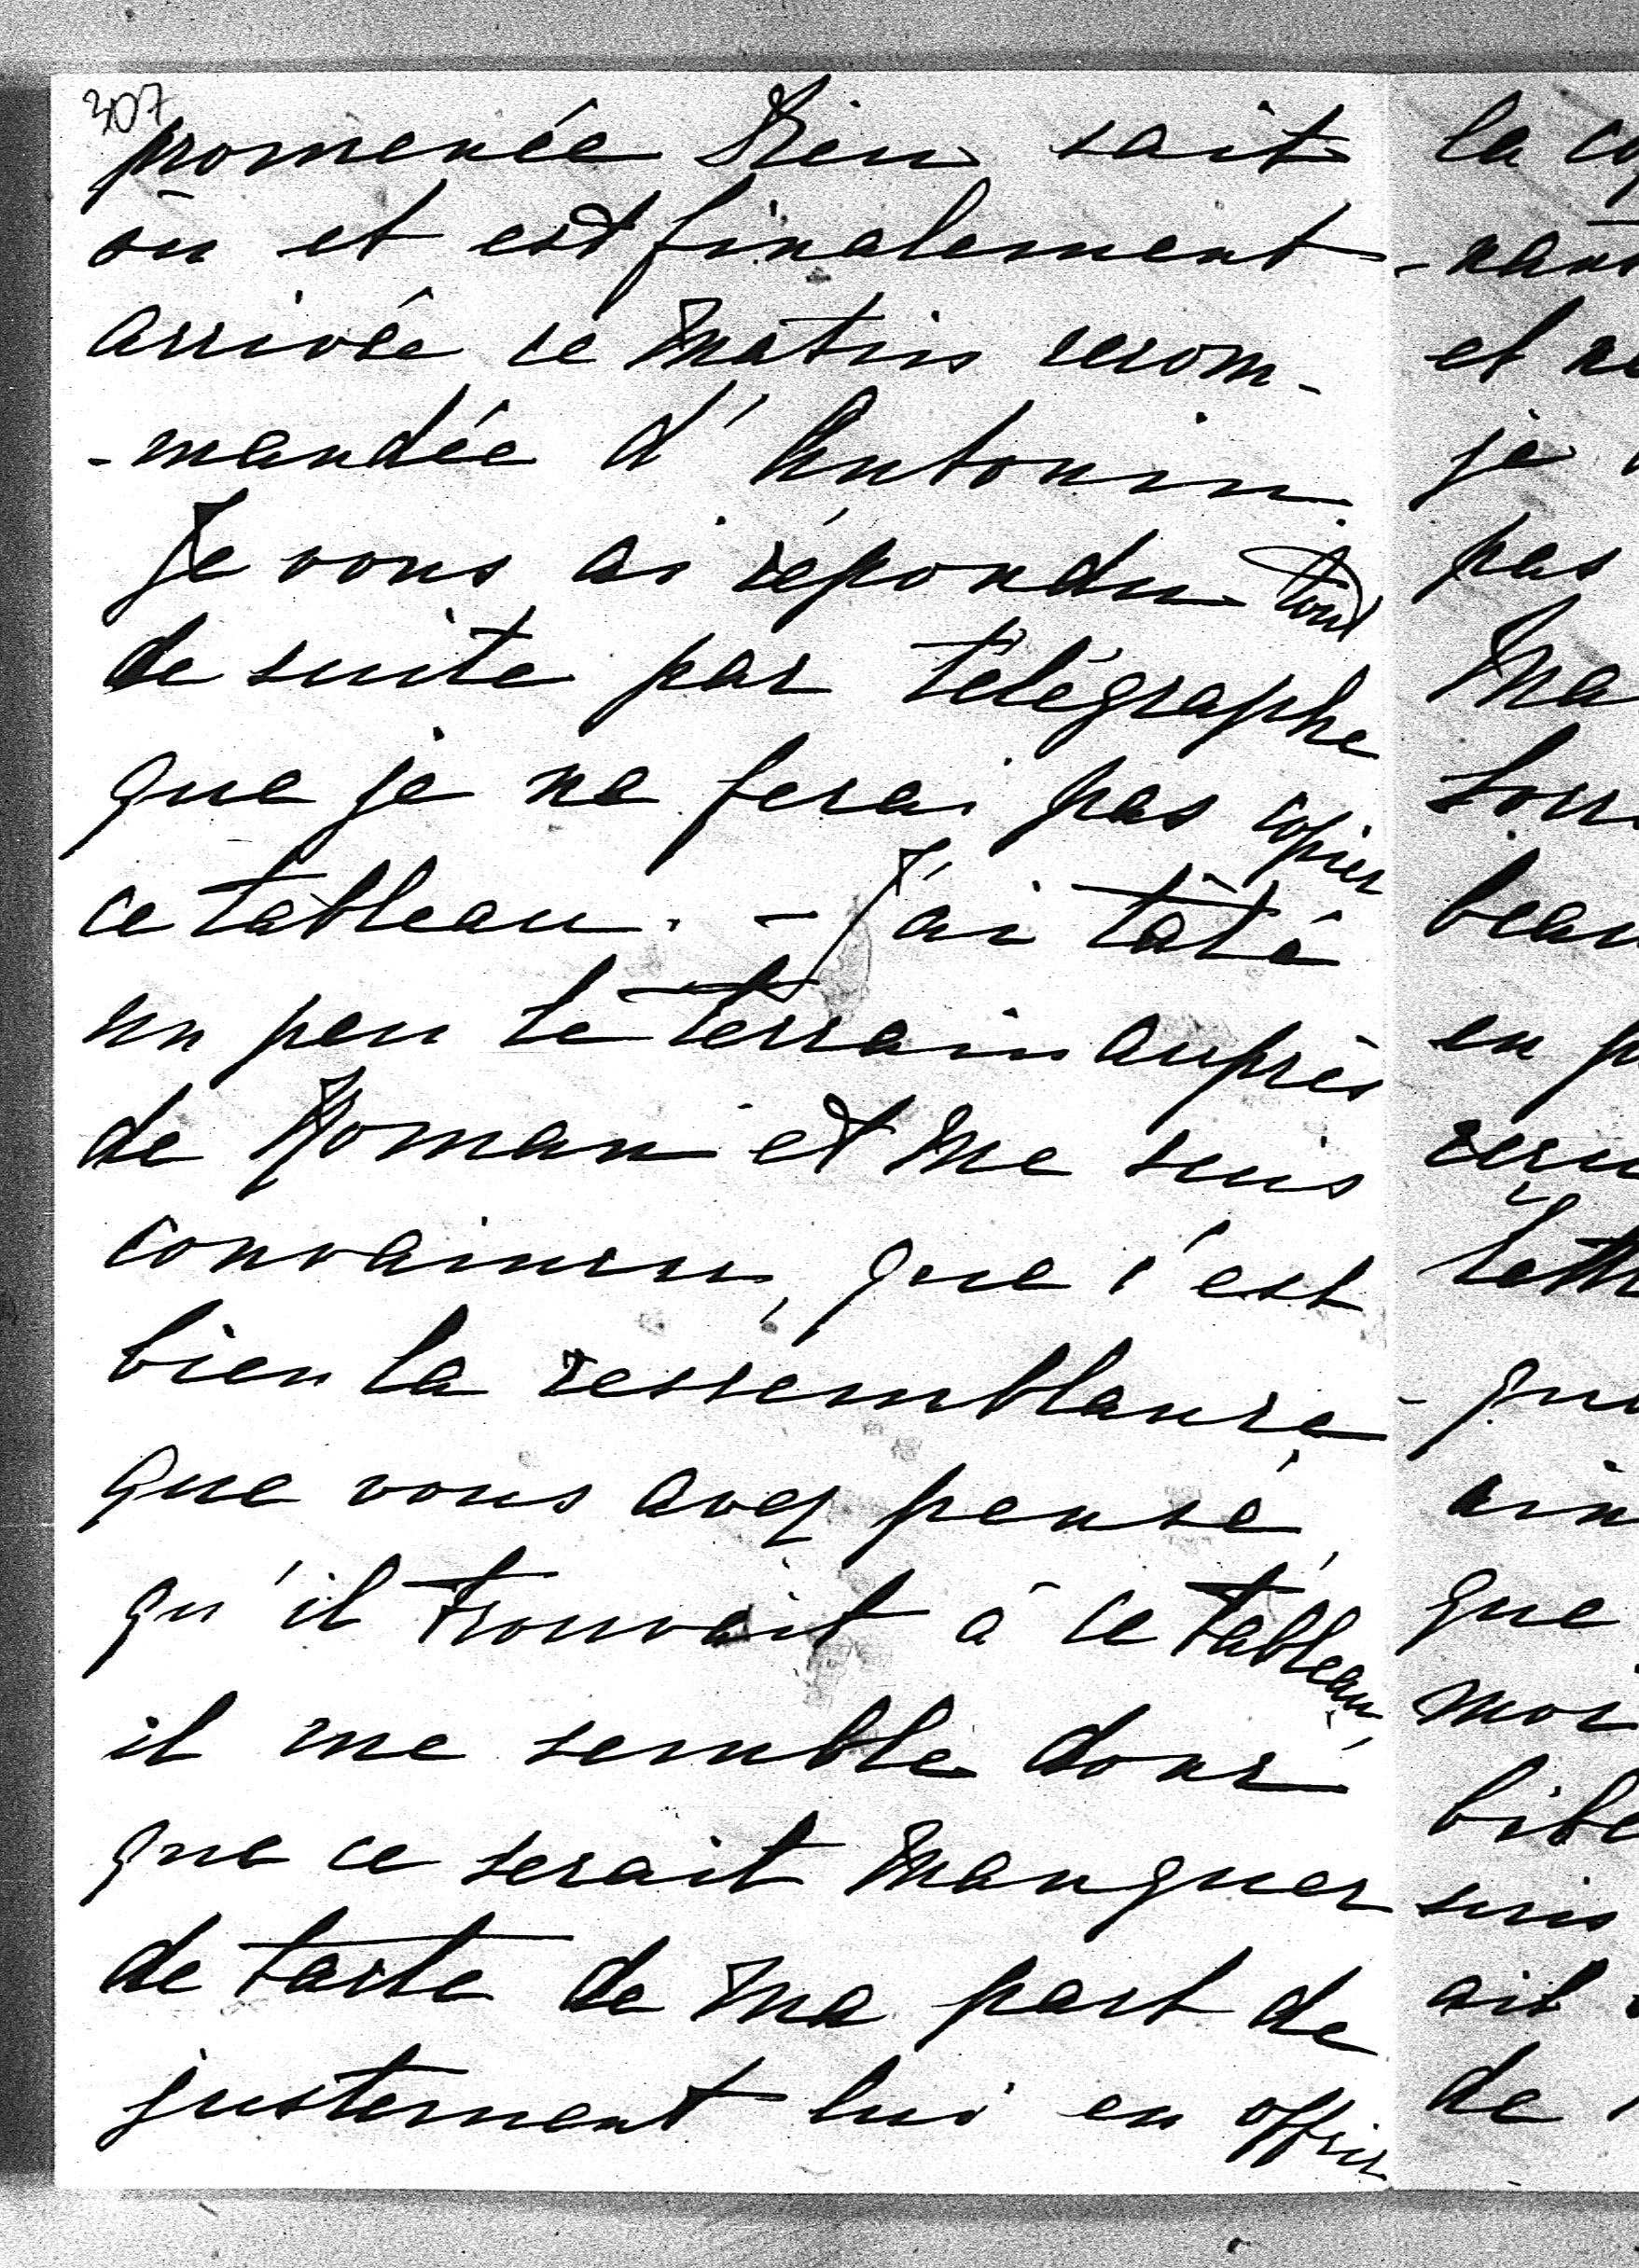 307
promenée Dieu sait
où et est finalement
arrivée ce matin recom-
-mandée d'Antonin.
Je vous ai répondu tout
de suite par télégraphe
que je ne ferai pas copier
ce tableau. - J'ai tâté
un peu le terrain auprès
de Roman et me suis
convaincu, que c'est
bien la ressemblance,
que vous avez pensé,
qu'il trouvait à ce tableau,
il me semble donc
que ce serait manquer
de tacte de ma part de
justement lui en offrir
la
-nant
et
je
pas
Ma
beau
en
que
ait
de